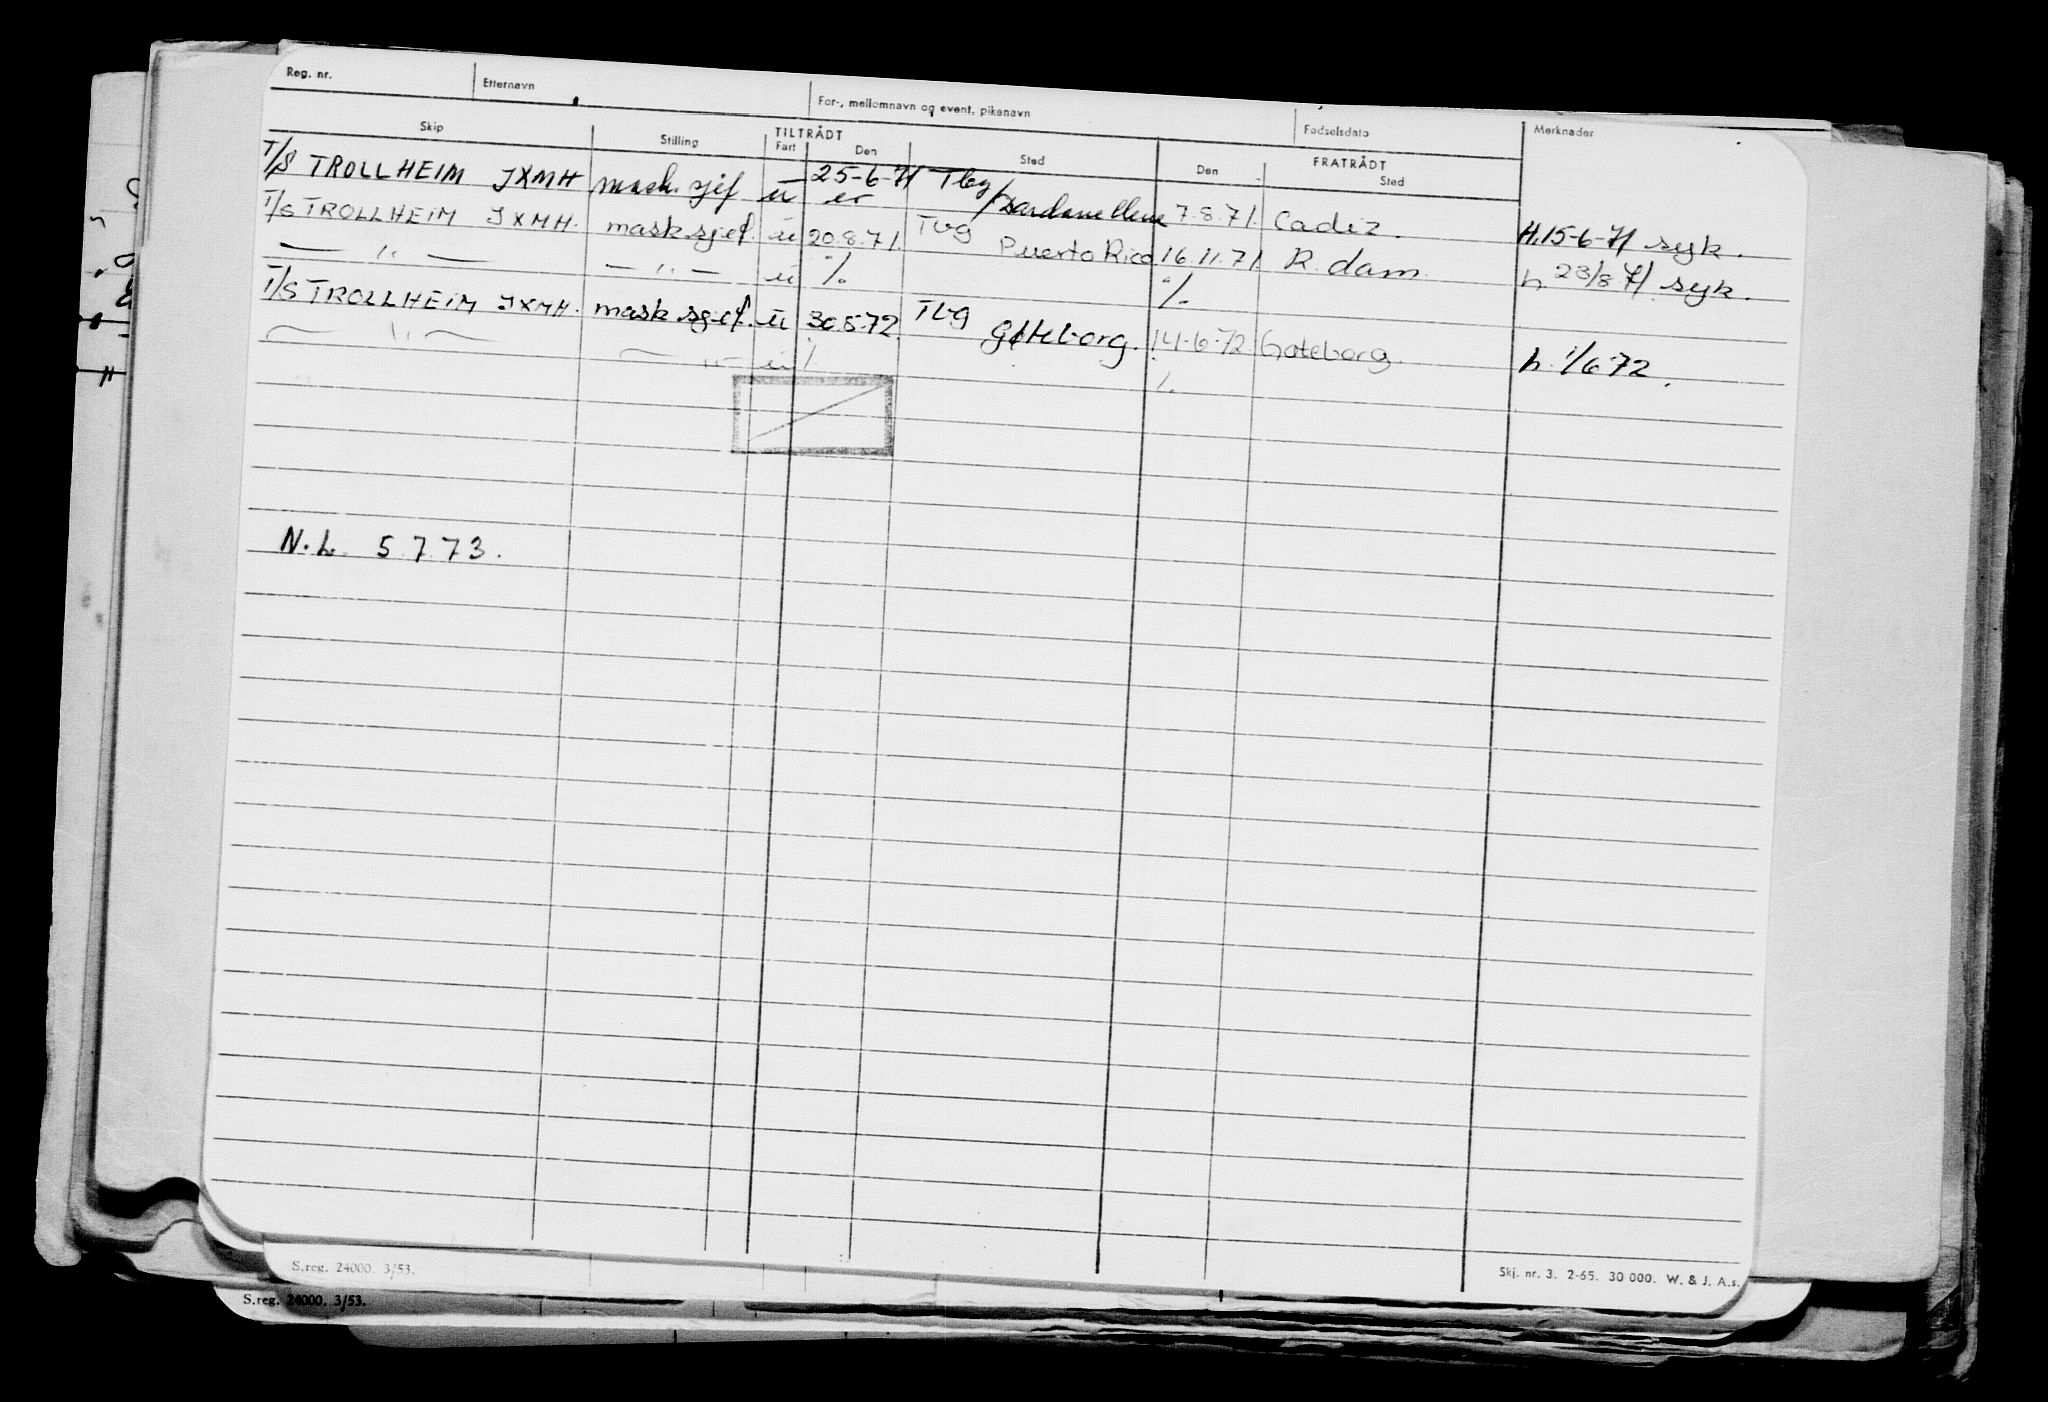 Reg. nr. Etternavn For-, mellomnavn og event. pikenavn Fødselsdato Merknader
Skip Stilling TILTRÅDT Fart Den Sted FRATRÅDT Den Sted
T/S TROLLHEIM JXMH mask. sjef u 25-6-71 Tbg/Dardanellene 7.8.71. Cadiz. H.15-6-71 syk.
T/S TROLLHEIM JXMH. mask sjef. u 20.8.71. Tbg Puerto Rico 16.11.71 R.dam. h 23/8 71 syk.
— " — — " — u %. %.
T/S TROLLHEIM JXMH. mask sjef. u 30.5.72. Tbg Gøteborg. 14-6-72. Goteborg. h. 1/6 72.
— " — — " — u
N.L. 5.7.73.
S.reg. 24000. 3/53.
Skj. nr. 3. 2-65. 30 000. W. & J. A.s.
S.reg. 24000. 3/53.